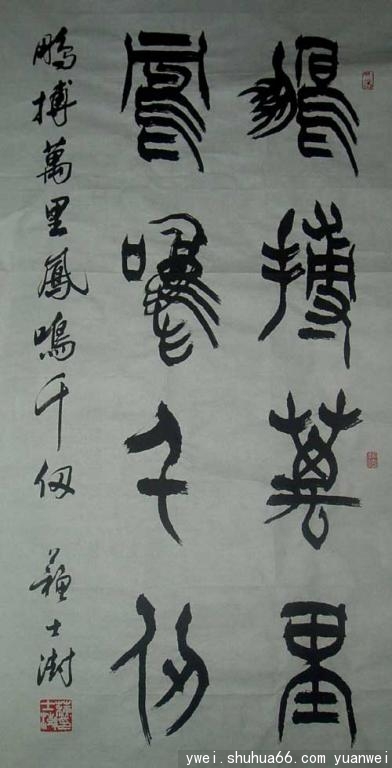 鵬搏萬里
鳳鳴千仞
鵬搏萬里鳳鳴千仞 蘇士澍
ywei.shuhua66.com yuanwei